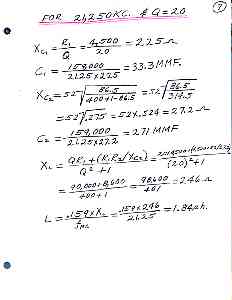 7
FOR 21,250 KC. & Q=20
XC1 = R1/Q = 4,500/20 = 225 Ω
C1 = 159,000/21.25×225 = 33.3 MMF.
XC2 = 52 √86.5/400+1-86.5 = 52 √86.5/314.5
= 52 √.275 = 52×.524 = 27.2 Ω
C2 = 159,000/21.25×27.2 = 271 MMF.
XL = QR1+(R1R2/XC2)/Q²+1 =
(20)²+1
= 90,000+8,600/400+1 = 98,600/401 = 246 Ω
L = .159×XL/fMC = .159×246/21.25 = 1.84 μh.